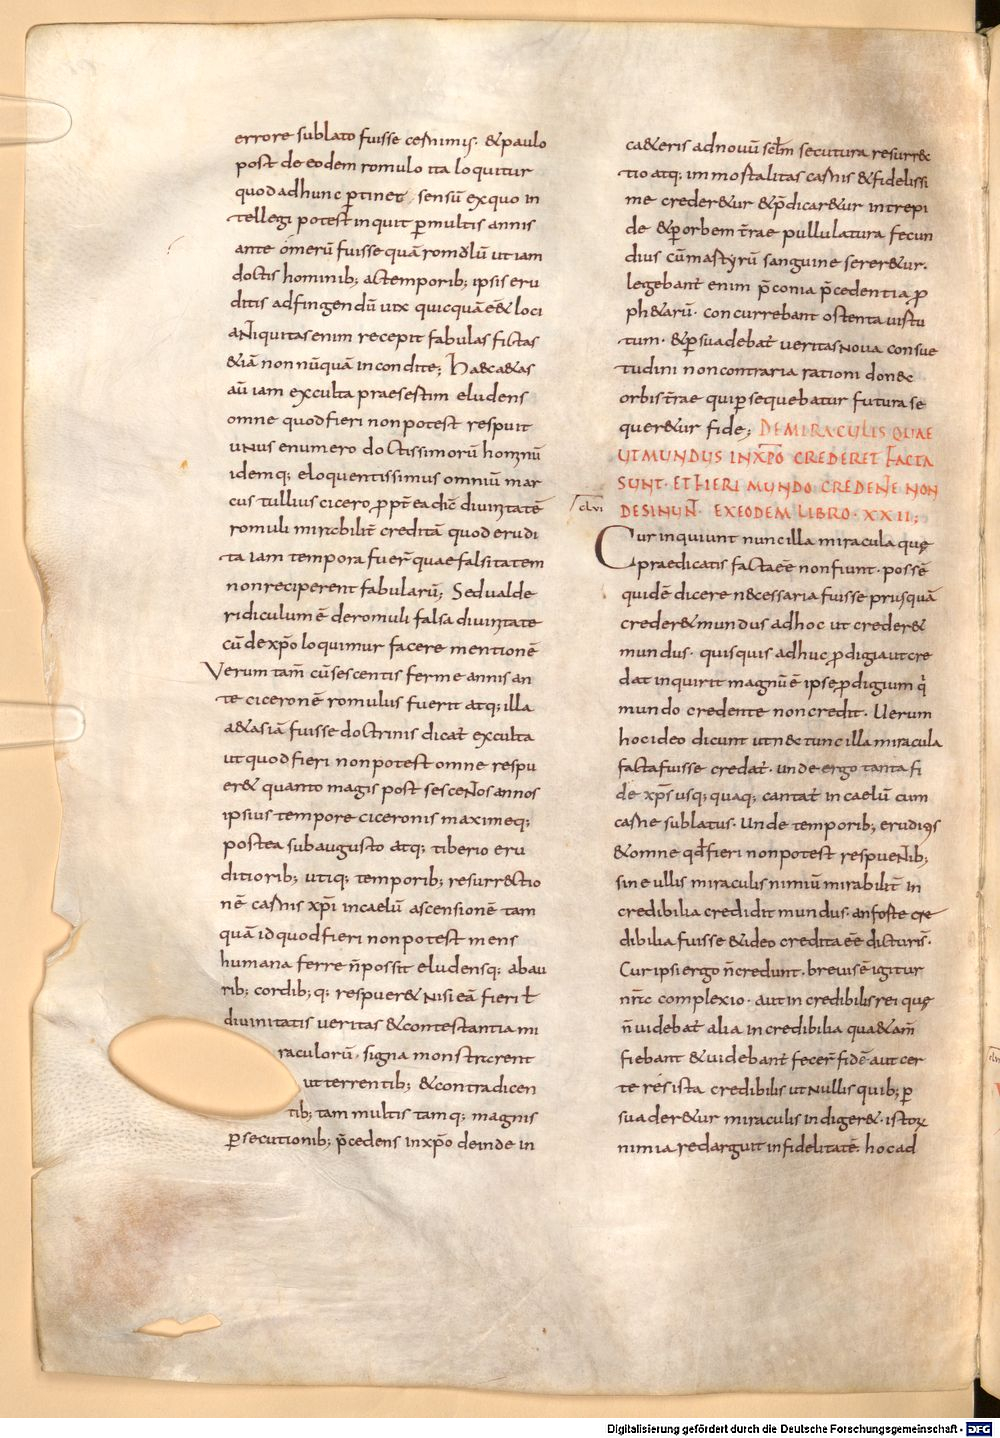 errore sublato fuisse cernimus. & paulo
post de eodem romulo ita loquitur
quod ad hunc ptinet, sensū ex quo in
tellegi potest inquit p multis annis
ante omerū fuisse quā romolū ut iam
doctis hominib; ac temporib; ipsis eru
ditis ad fingendū uix quicquā e&̄ loci
antiquitas enim recepit fabulas fictas
&iā non nūquā incondite; Haec a&as
aū iam exculta praesertim eludens
omne quod fieri non potest respuit
unus e numero doctissimorū hominū
idemq; eloquentissimus omniū mar
cus tullius cicero, ppt̄ ea dic̄ diuinitatē
romuli mirabilit̄ creditā quod erudi
ta iam tempora fuer̄ quae falsitatem
non reciperent fabularū; Sed ualde
ridiculum ē de romuli falsa diuinitate
cū de xp̄o loquimur facere mentionē
Verum tam̄ cū sescentis ferme annis an
te ciceronē romulus fuerit atq; illa
a&as iā fuisse doctrinis dicat̄ exculta
ut quod fieri non potest omne respu
er& quanto magis post sescentos annos
ipsius tempore ciceronis maximeq;
postea sub augusto atq; tiberio eru
ditiorib; utiq; temporib; resurrectio
nē carnis xp̄i in caelū ascensionē tam
quā id quod fieri non potest mens
humana ferre n̄ possit eludensq; ab au
rib; cordib;q; respuer& nisi eā fieri t̄
diuinitatis ueritas & contestantia mi
raculorū, signa monstrarent
ut terrentib; & contradicen
tib; tam multis tamq; magnis
psecutionib; p̄cedens in xp̄o deinde in
ca&eris ad nouū scl̄m secutura resurrec
tio atq; immortalitas carnis & fidelissi
me creder&ur & p̄dicar&ur intrepi
de & p orbem t̄rae pullulatura fecun
dius cū martyrū sanguine serer&ur.
legebant̄ enim p̄conia p̄cedentia p
ph&arū. concurrebant ostenta uirtu
tum. & psuadebat̄ ueritas noua consue
tudini non contraria rationi donec
orbis t̄rae qui psequebatur futura se
quer&ur fide; DE MIRACULIS QUAE
UT MUNDUS IN XPO CREDERET FACTA
SUNT. ET FIERI MUNDO CREDENTE NON
clvi DESINUNT. EX EODEM LIBRO. XXII;
Cur inquiunt nunc illa miracula quę
praedicatis facta e͞e non fiunt. possē
quidē dicere necessaria fuisse priusquā
creder& mundus ad hoc ut creder&
mundus. quisquis adhuc pdigia ut cre
dat inquirit magnū ē ipse pdigium q̄
mundo credente non credit. Uerum
hoc ideo dicunt ut nec tunc illa miracula
facta fuisse credat̄. unde ergo tanta fi
de xp̄s usq;quaq; cantat̄ in caelū cum
carne sublatus. Unde temporib; eruditis
& omne qd̄ fieri non potest respuentib;
sine ullis miraculis nimiū mirabilit̄ in
credibilia credidit mundus. an forte cre
dibilia fuisse & ideo credita e͞e dicturis̄.
Cur ipsi ergo n̄ credunt. breuis ē igitur
nr̄a complexio. aut incredibilis rei quę
n̄ uidebat̄ alia incredibilia quae tam̄
fiebant & uidebant̄ fecer̄ fidē aut cer
te res ista credibilis ut nullis quib; p
suader&ur miraculis indiger&. istoꝝ
nimia redarguit infidelitatē. hoc ad
Digitalisierung gefördert durch die Deutsche Forschungsgemeinschaft - DFG